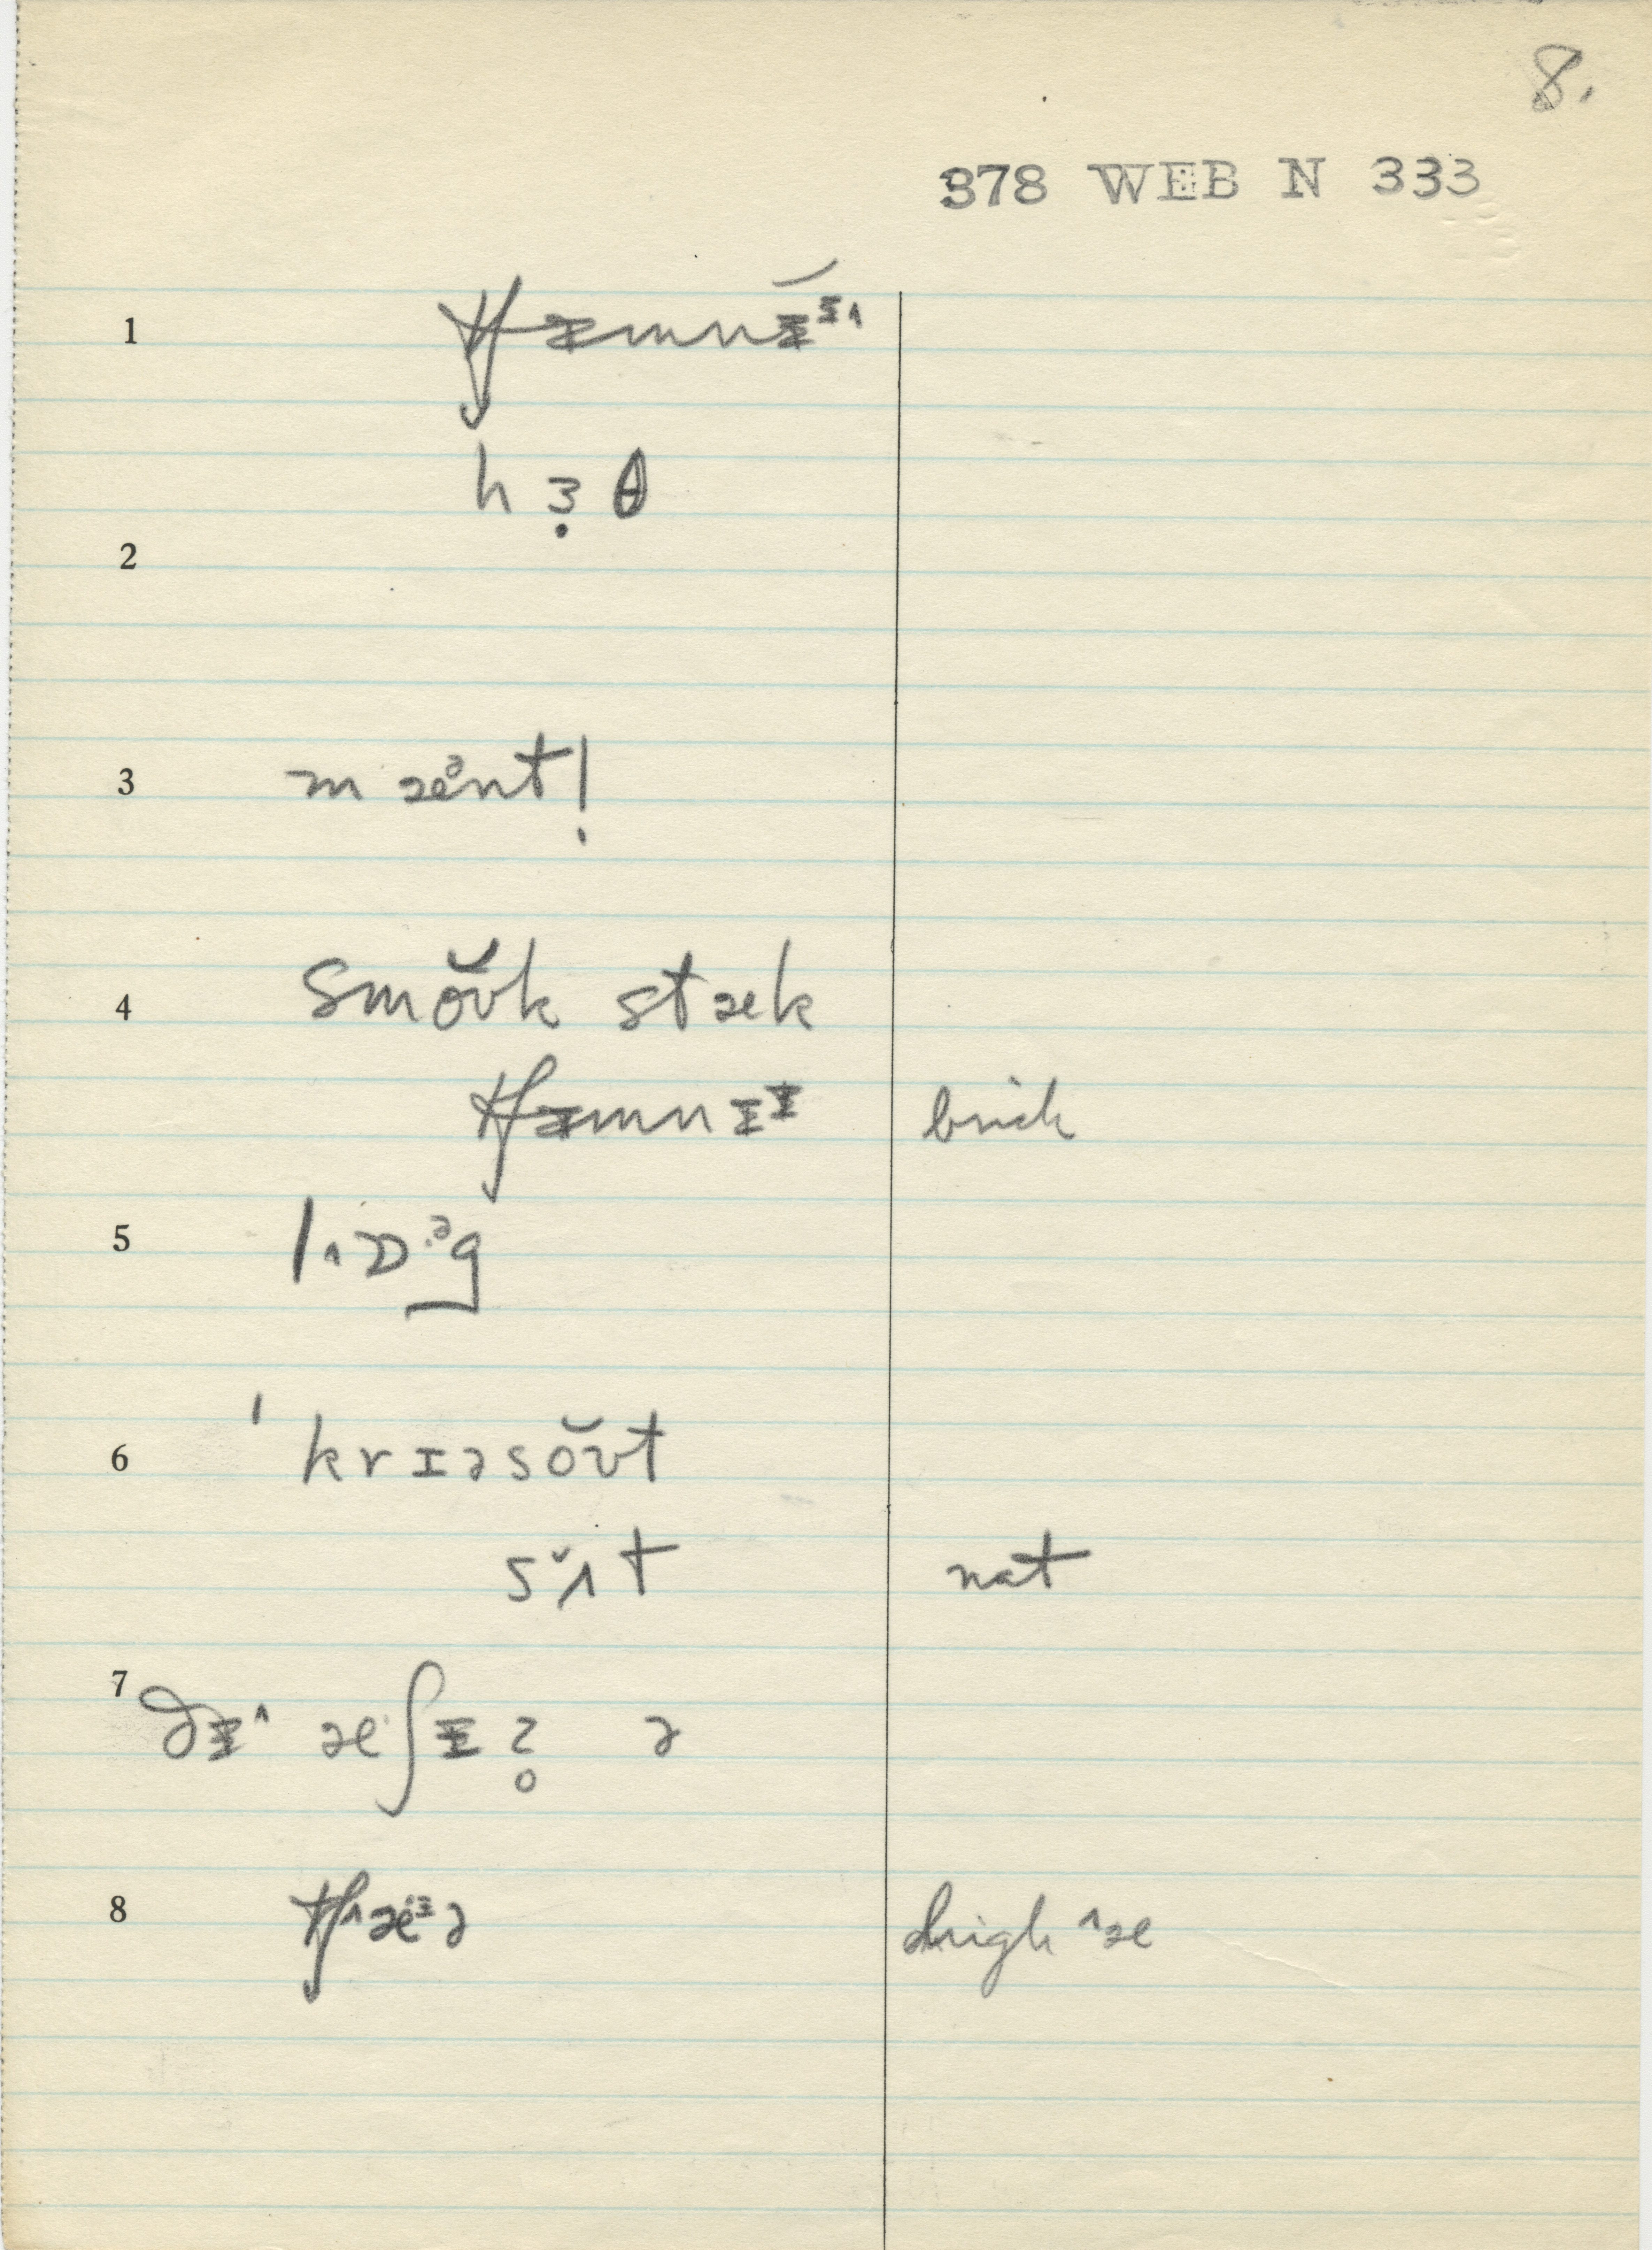 8.
378 WEB N 333
1 tʃɪ̵mnɪ̵ᵻ˄
h ɜ̣ θ
2
3 m æᵊnt!
4 smŏʊk stæk
tʃɪ̵mnɪ̵ᵻ brick
5 l˄ɒ·ᵊg
6 ˈkrɪəsŏʊt
sʌ̆t not
7 ðɪ̵˄ æʃɪ̵ ʔ̥ ə
8 tʃ˄æᵻə high ˄æ